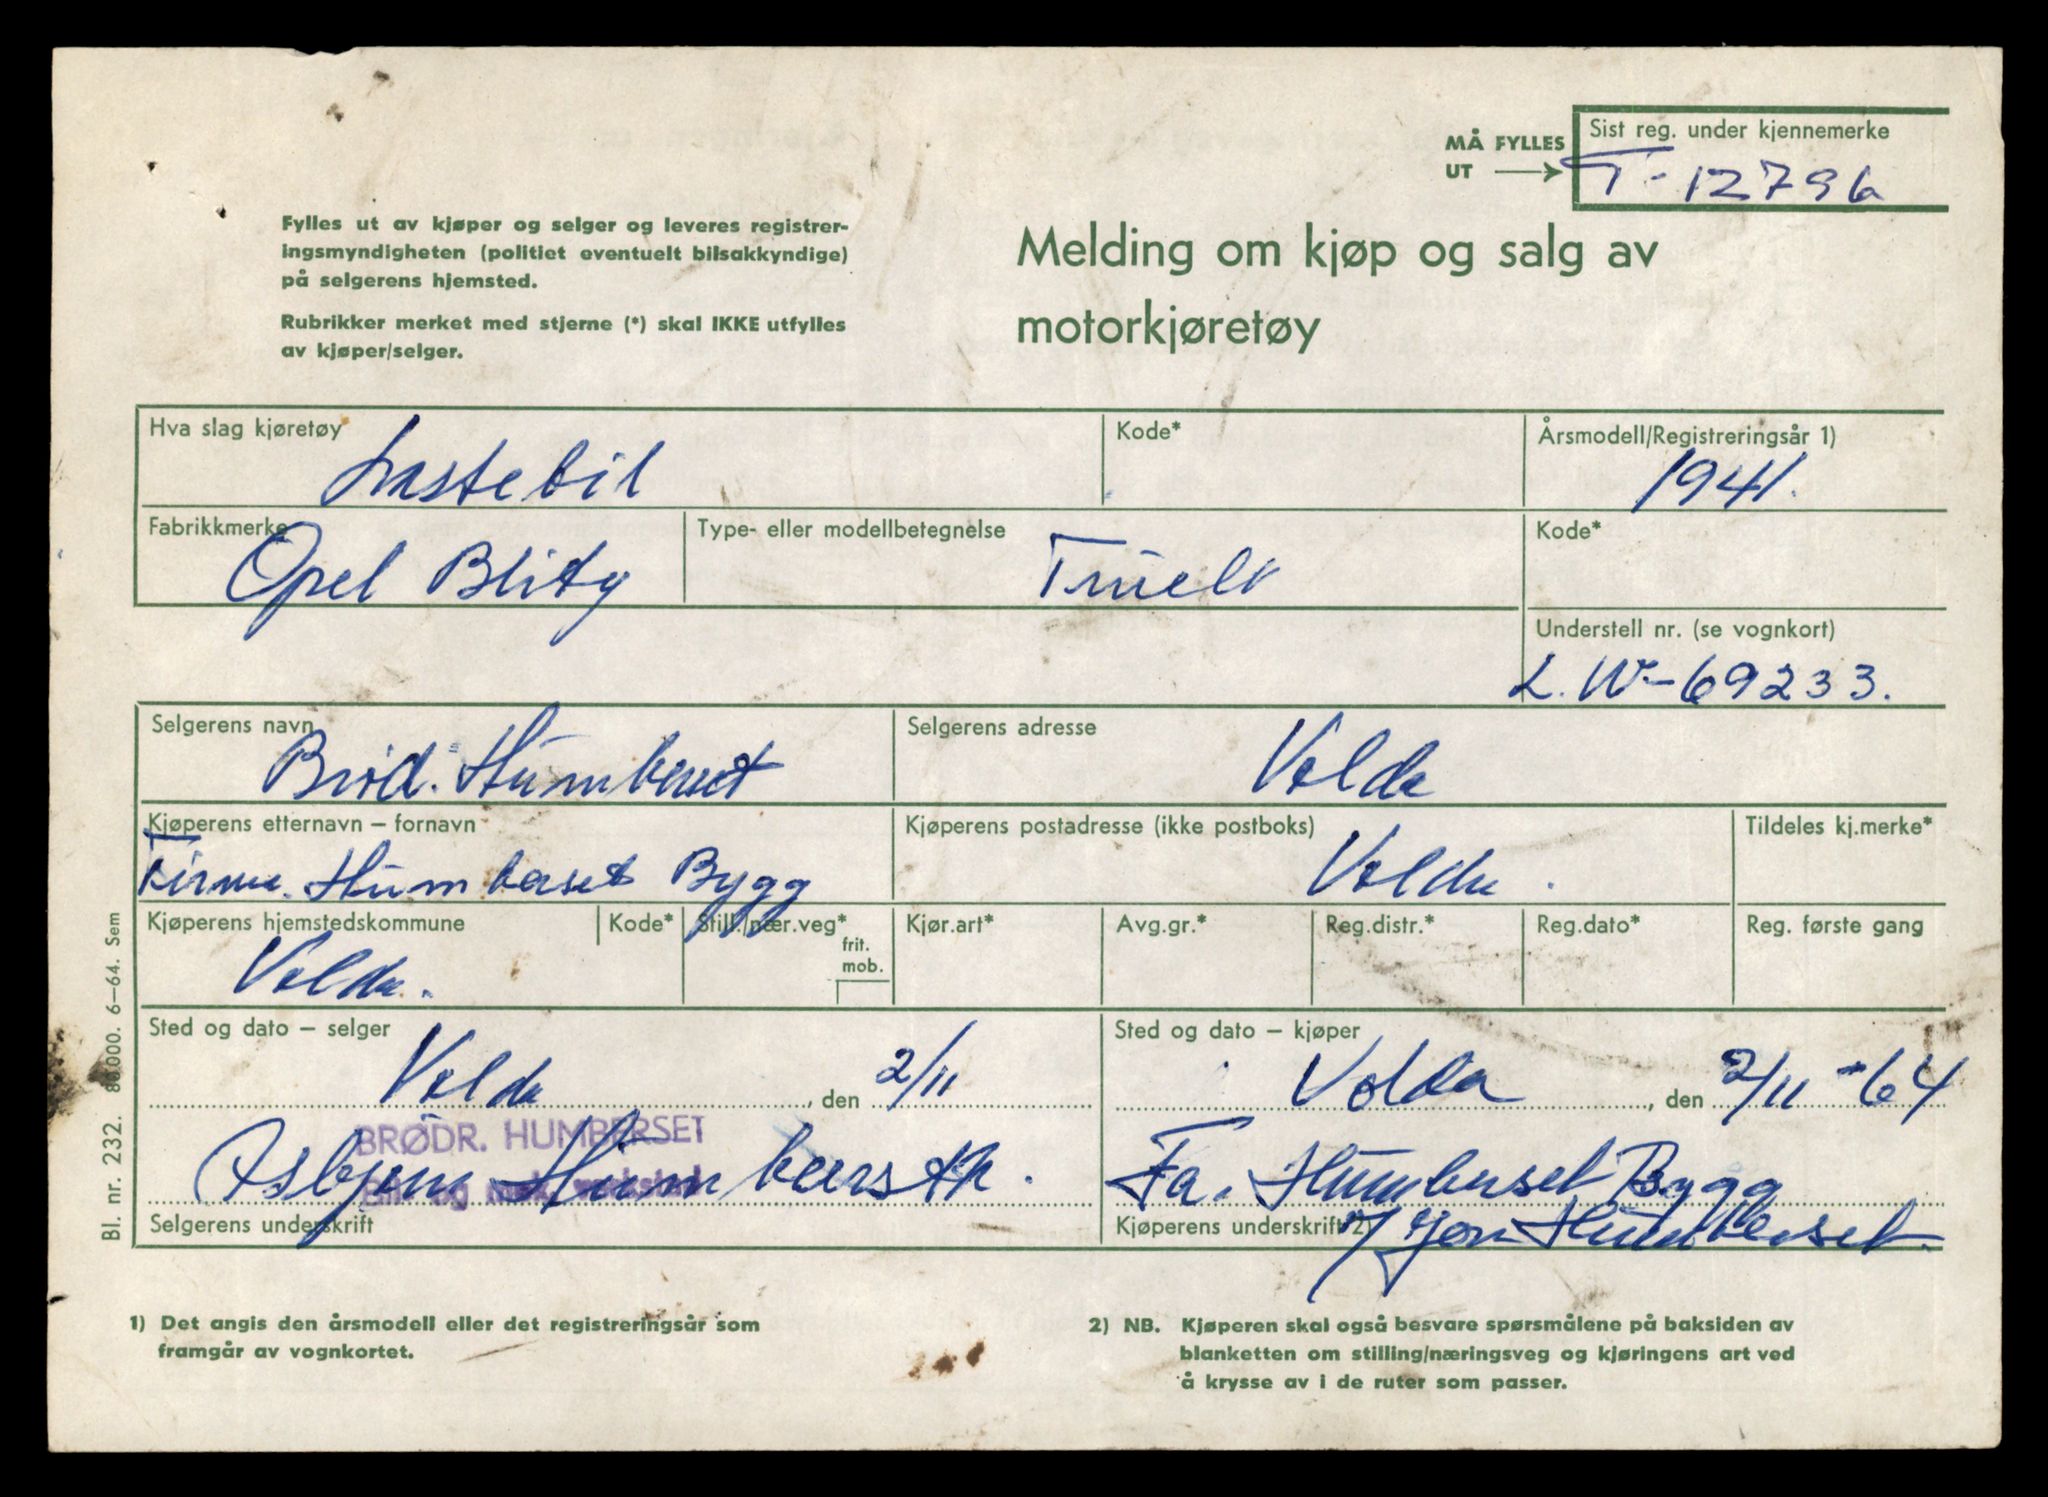 MÅ FYLLES
UT
Sist reg. under kjennemerke
T-12796
Fylles ut av kjøper og selger og leveres registrer-
ingsmyndigheten (politiet eventuelt bilsakkyndige)
på selgerens hjemsted.
Rubrikker merket med stjerne (*) skal IKKE utfylles
av kjøper/selger.
Melding om kjøp og salg av
motorkjøretøy
Hva slag kjøretøy
Lastebil
Kode*
Årsmodell/Registreringsår 1)
1941.
Fabrikkmerke
Opel Blitz
Type- eller modellbetegnelse
Kode*
Understell nr. (se vognkort)
L.W-69233.
Selgerens navn
Brød. Humberset
Selgerens adresse
Volda
Kjøperens etternavn – fornavn
Firma. Humberset Bygg
Kjøperens postadresse (ikke postboks)
Volda.
Tildeles kj.merke*
Kjøperens hjemstedskommune
Volda.
Kode*
Still./nær.veg*
frit.
mob.
Kjør.art*
Avg.gr.*
Reg.distr.*
Reg.dato*
Reg. første gang
Sted og dato – selger
Volda, den 2/11
BRØDR. HUMBERSET
Bil- og mek. verksted
Asbjørn Humberseth.
Selgerens underskrift
Sted og dato – kjøper
Volda, den 2/11-64
Fa. Humberset Bygg
Kjøperens underskrift 2)
Jon Humberset.
Bl. nr. 232. 80000. 6–64. Sem
1) Det angis den årsmodell eller det registreringsår som
framgår av vognkortet.
2) NB. Kjøperen skal også besvare spørsmålene på baksiden av
blanketten om stilling/næringsveg og kjøringens art ved
å krysse av i de ruter som passer.